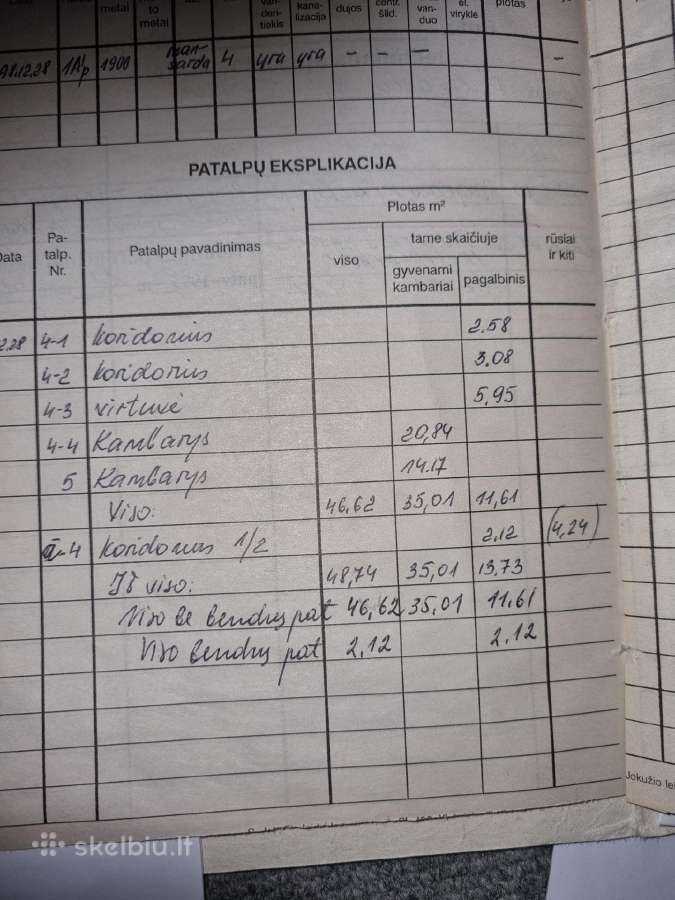 metai to metai van- den- tiekis kana- lizacija dujos centr. šild. van- duo el. viryklė plotas
98.12.28 1A/p 1900 man- sarda 4 yra yra – – – –
PATALPŲ EKSPLIKACIJA
Data Pa- talp. Nr. Patalpų pavadinimas Plotas m²
viso tame skaičiuje rūsiai ir kiti
gyvenami kambariai pagalbinis
12.28 4-1 koridorius 2.58
4-2 koridorius 3.08
4-3 virtuvė 5,95
4-4 Kambarys 20,84
5 Kambarys 14.17
Viso: 46,62 35,01 11,61
a-4 koridorius 1/2 2,12 (4,24)
Iš viso: 48,74 35,01 13,73
Viso be bendrų pat 46,62 35,01 11.61
Viso bendrų pat 2,12 2,12
Jokužio lei
skelbiu.lt